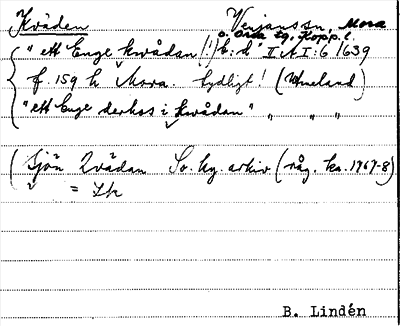 Kvåden Venjanssn Mora
o. Orsa tg. Kopp. l.
"ett Enge kwådan (!) E: d" II A I: 6 /639
f. 159 h Mora. tydligt! (Wneland)
"ett Enge derhos i kwådan" " " "
(Sjön Qvådan So. hy. arkiv (råg. ka. 1767-8)
" = Lk
B. Lindén